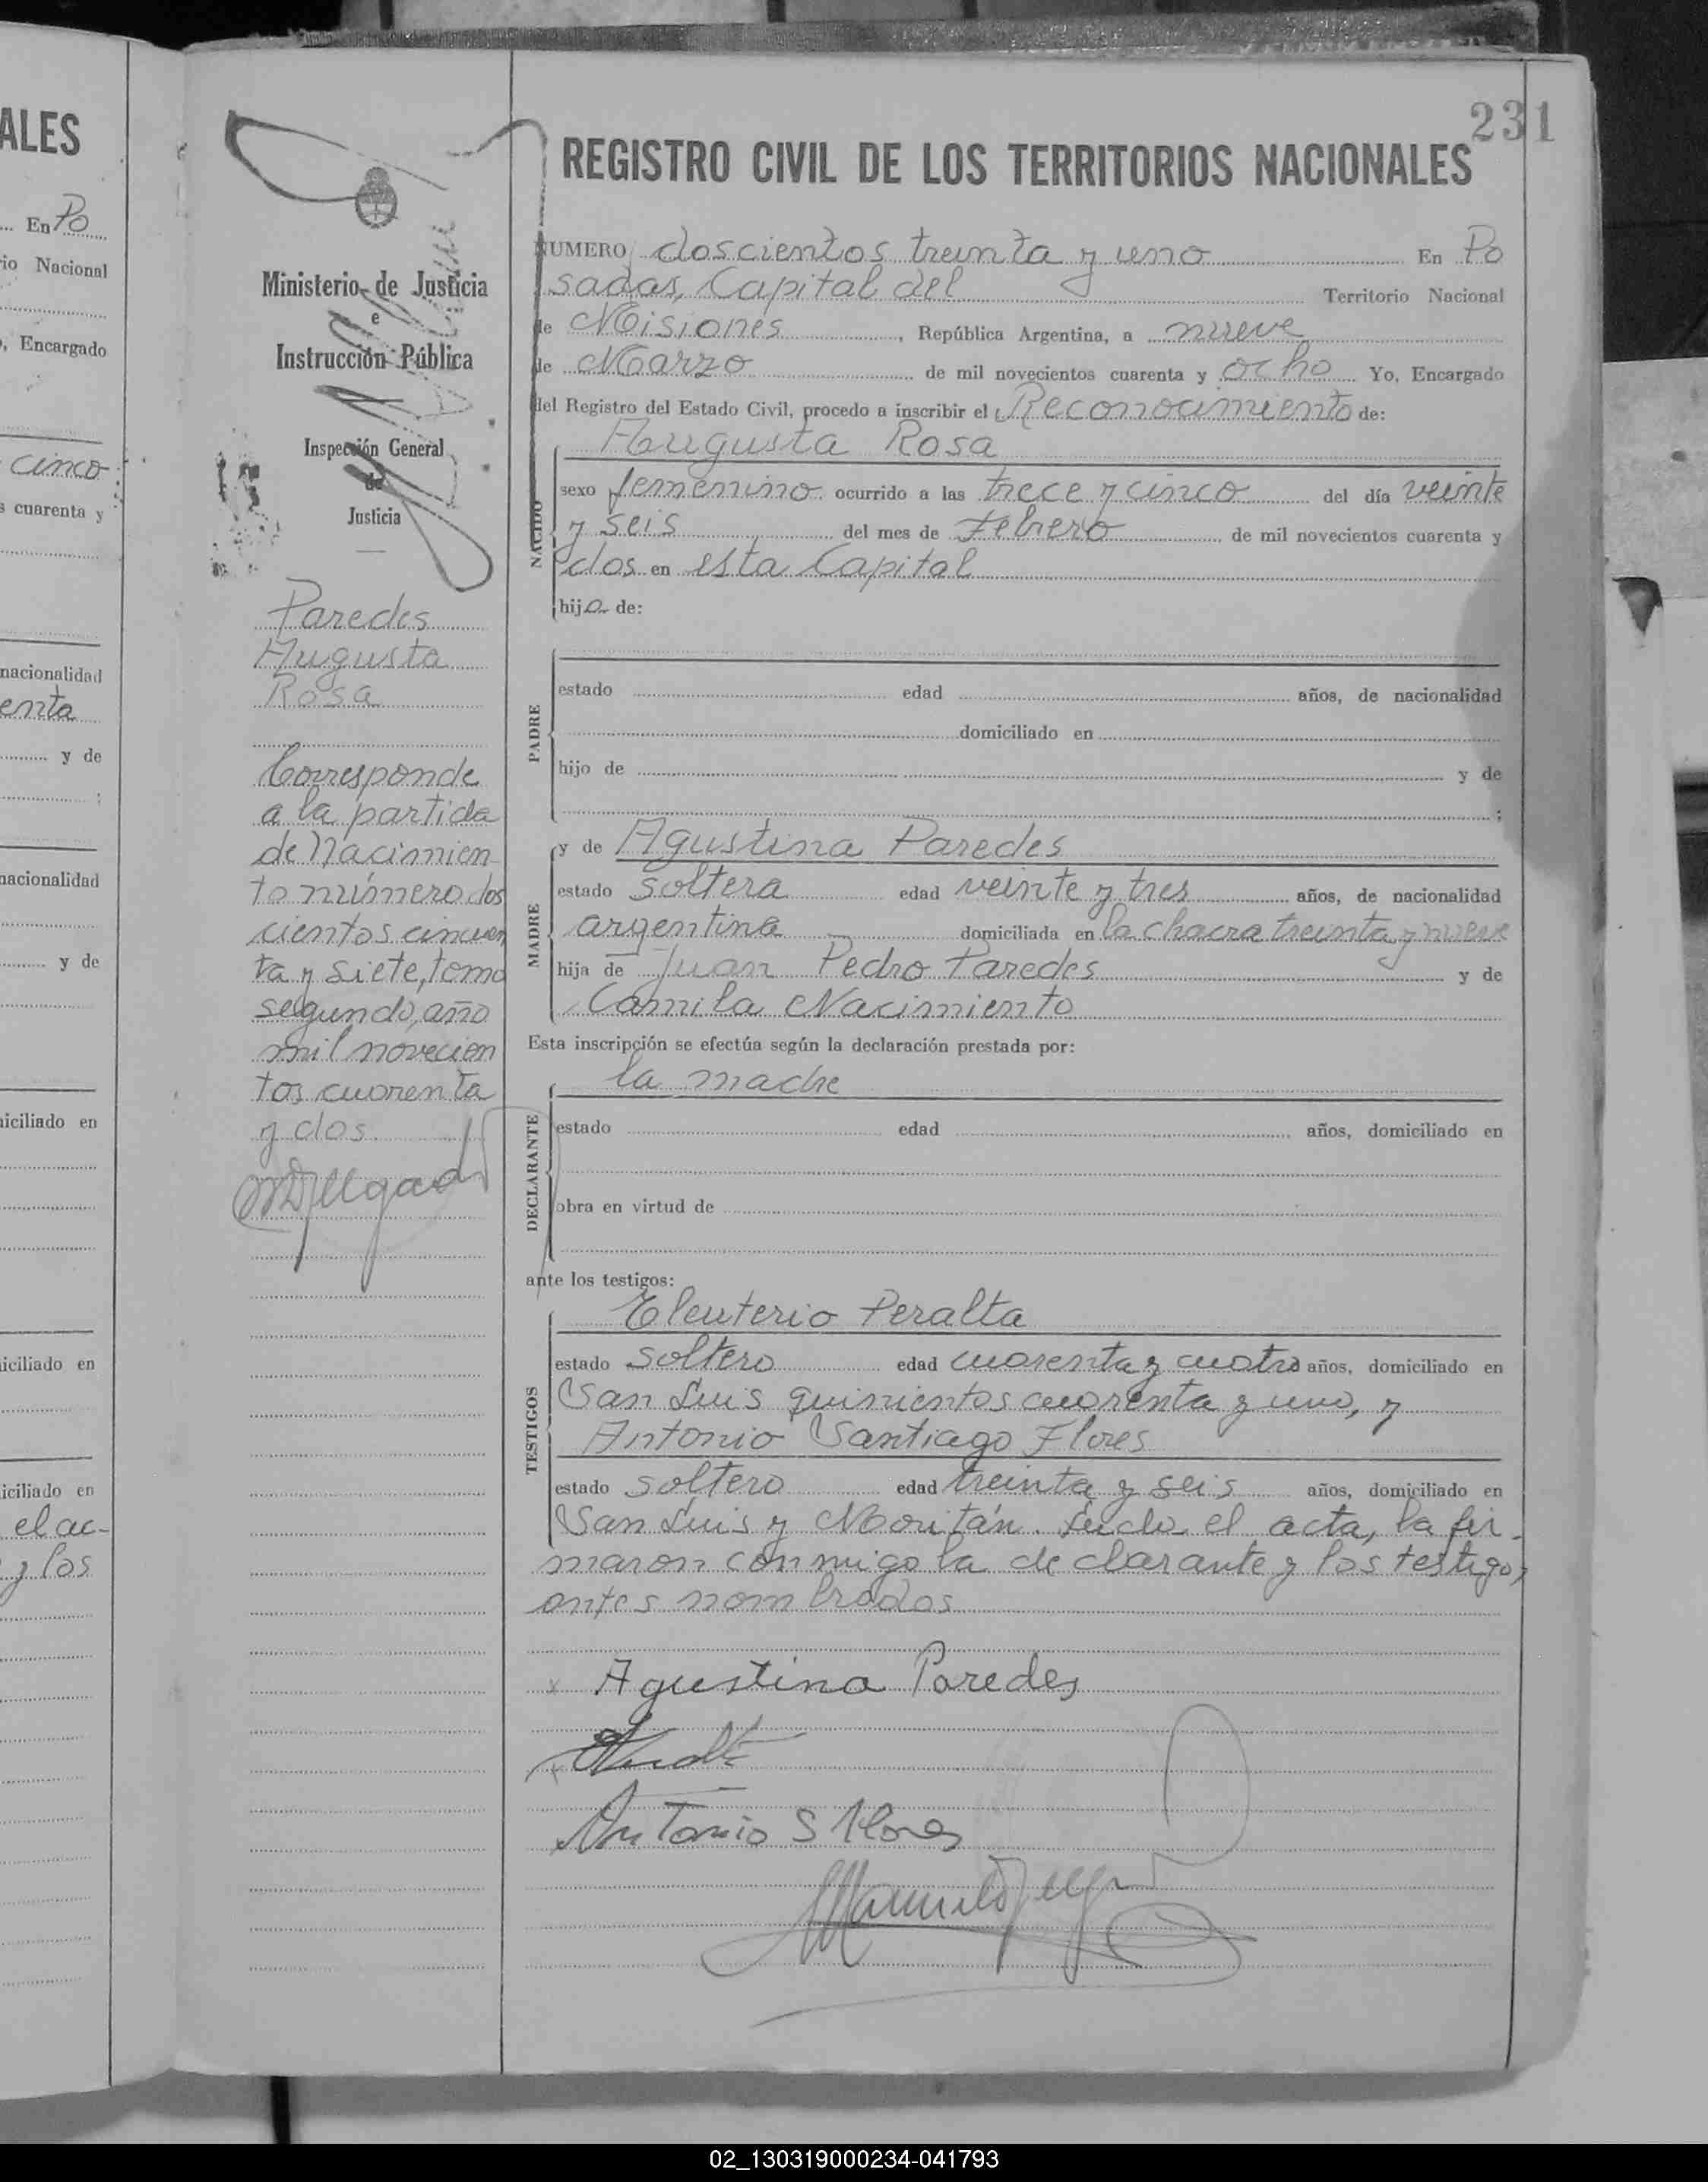 ALES
En Po
rio Nacional
, Encargado
cinco
s cuarenta y
nacionalidad
enta
y de
;
nacionalidad
y de
iciliado en
iciliado en
iciliado en
el ac-
y los
231
Ministerio de Justicia
e
Instrucción Pública
Inspección General
de
Justicia
Paredes
Augusta
Rosa
Corresponde
a la partida
de Nacimien
to número dos
cientos cincuen
ta y siete, tomo
segundo, año
mil novecien
tos cuarenta
y dos.
REGISTRO CIVIL DE LOS TERRITORIOS NACIONALES
NUMERO doscientos treinta y uno En Po
sadas, Capital del Territorio Nacional
de Misiones, República Argentina, a nueve
de Marzo de mil novecientos cuarenta y ocho Yo, Encargado
del Registro del Estado Civil, procedo a inscribir el Reconocimiento de:
NACIDO
Augusta Rosa
sexo femenino ocurrido a las trece y cinco del día veinte
y seis del mes de Febrero de mil novecientos cuarenta y
dos en esta Capital
hija de:
PADRE
estado edad años, de nacionalidad
domiciliado en
hijo de y de
;
MADRE
y de Agustina Paredes
estado soltera edad veinte y tres años, de nacionalidad
argentina domiciliada en la chacra treinta y nueve
hija de Juan Pedro Paredes y de
Camila Nacimiento
Esta inscripción se efectúa según la declaración prestada por:
DECLARANTE
la madre
estado edad años, domiciliado en
obra en virtud de
ante los testigos:
TESTIGOS
Eleuterio Peralta
estado soltero edad cuarenta y cuatro años, domiciliado en
San Luis quinientos cuarenta y uno, y
Antonio Santiago Flores
estado soltero edad treinta y seis años, domiciliado en
San Luis y Moritán. Leida el acta, la fir-
maron conmigo la declarante y los testigos
antes nombrados
x Agustina Paredes
Antonio S Flores
02_130319000234-041793